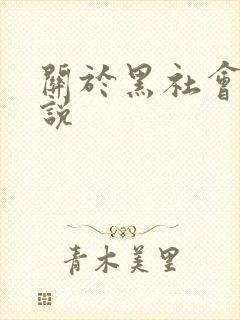 關於黑社會
説
青木美里